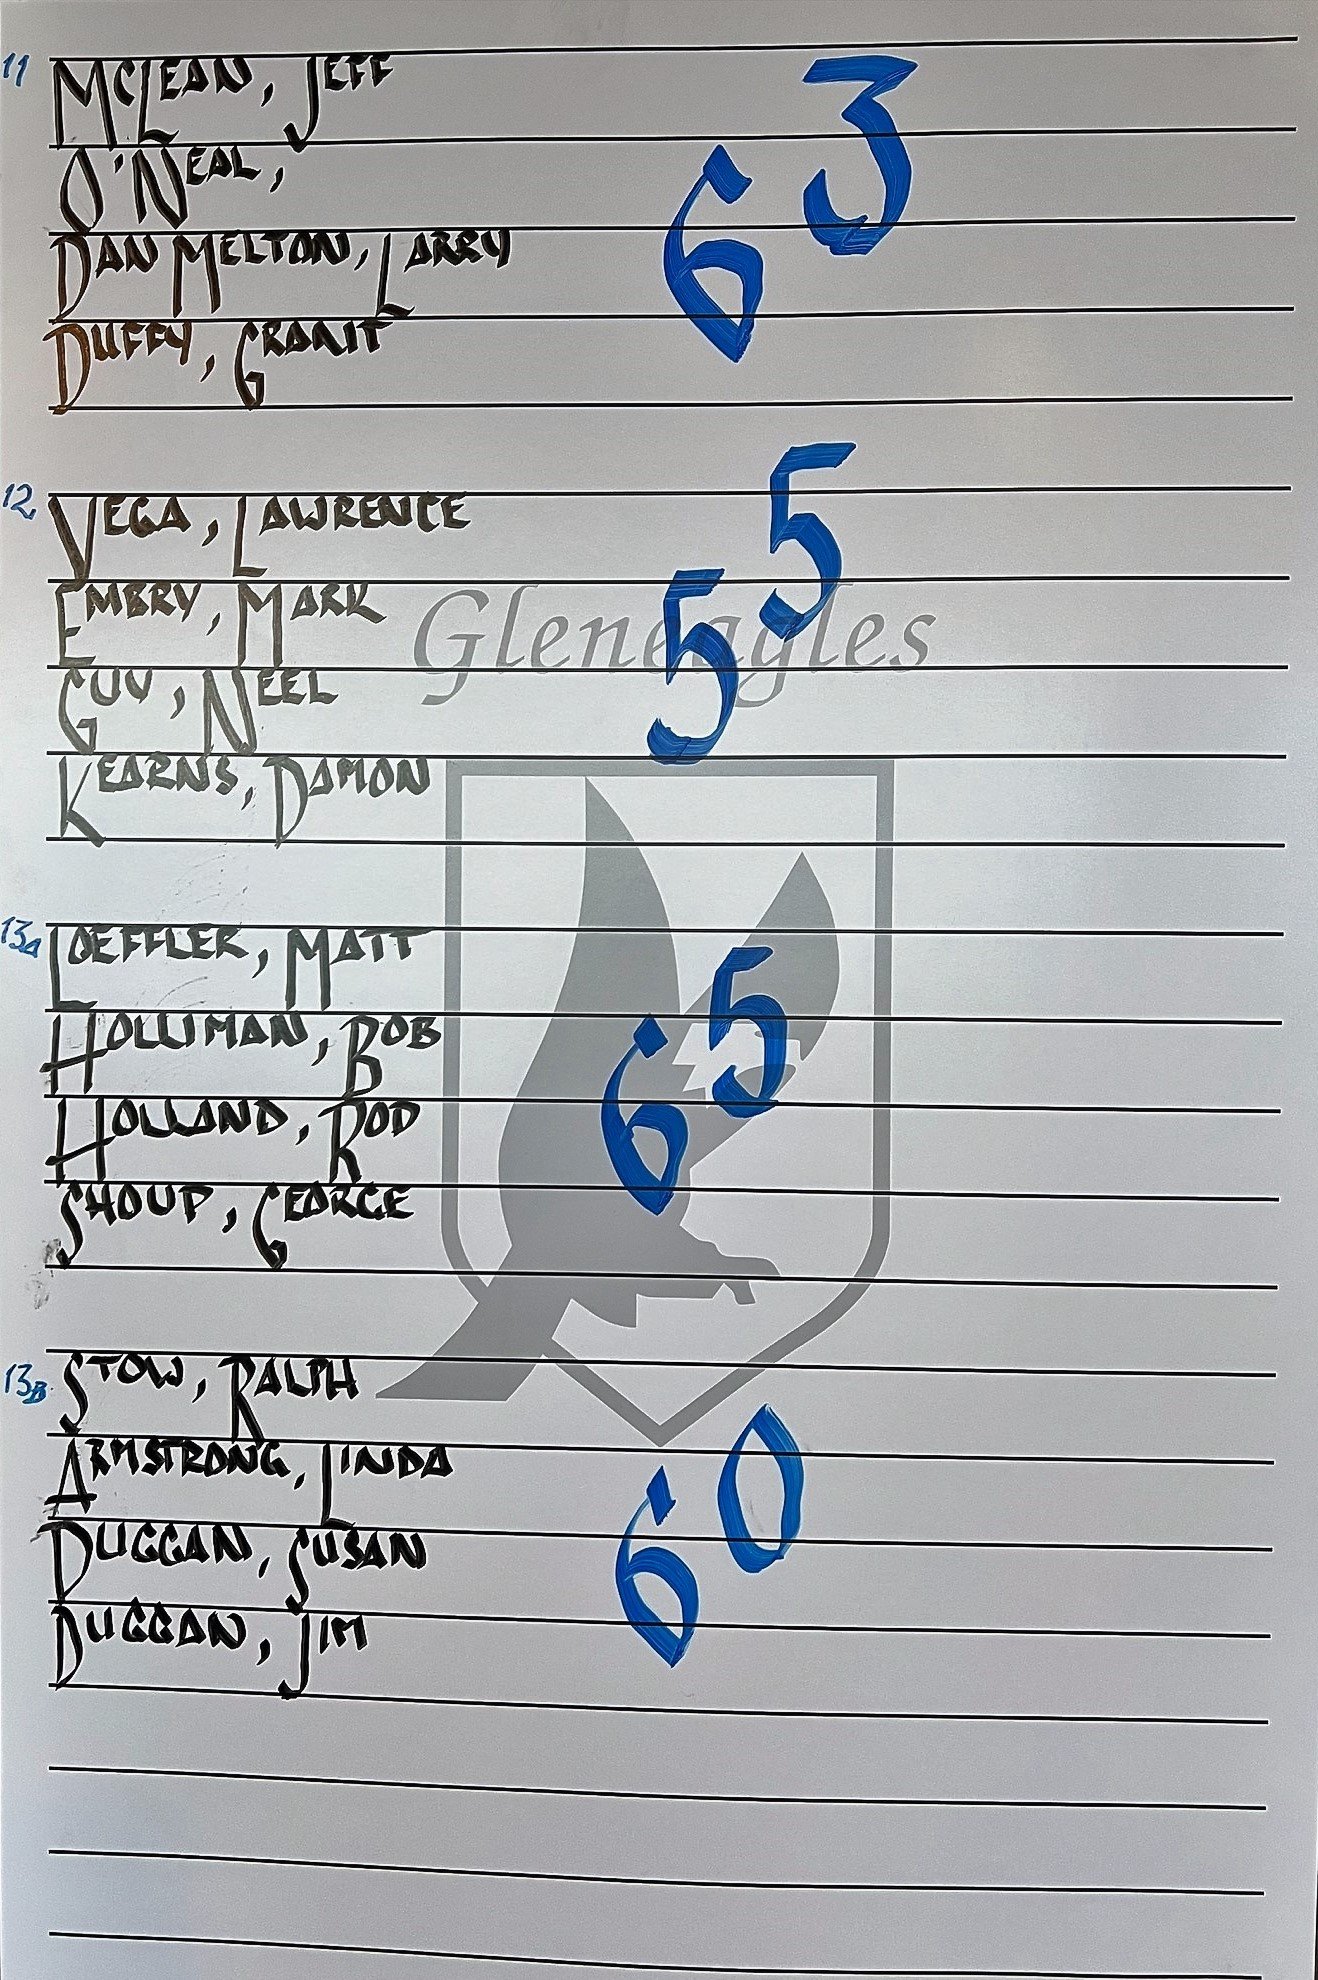 11
McLean, Jeff
O'Neal,
Dan Melton, Larry
Duffy, Grant
63
12
Vega, Lawrence
Embry, Mark
Guy, Neel
Kearns, Damon
55
Gleneagles
13A
Loeffler, Matt
Holliman, Bob
Holland, Rod
Shoup, George
65
13B
Stow, Ralph
Armstrong, Linda
Duggan, Susan
Duggan, Jim
60